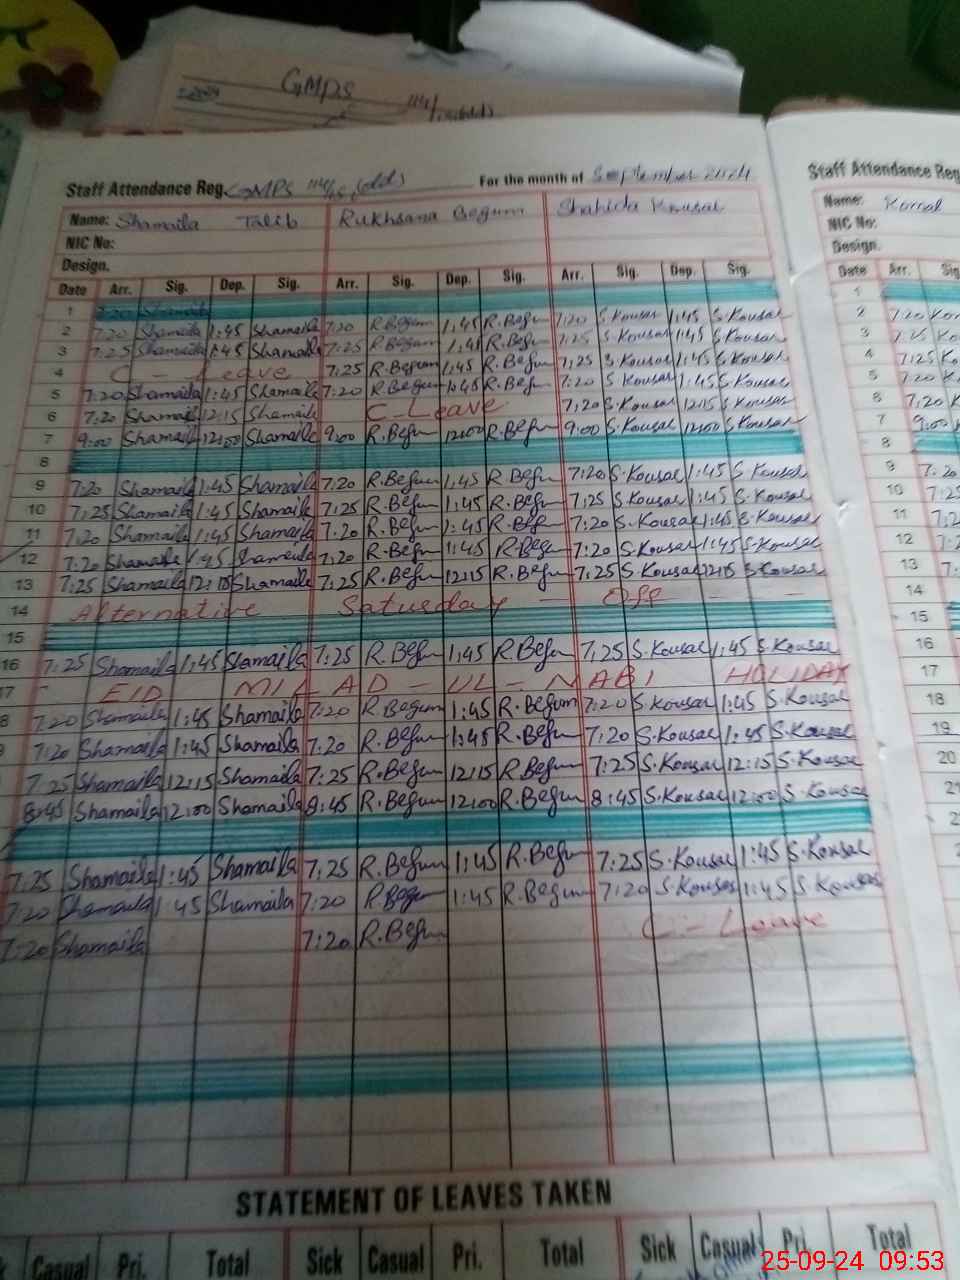 GMPS
Staff Attendance Reg. GMPS 114/S (old) For the month of September 2024
Name: Shamaila Talib Rukhsana Begum Shahida Kousar
NIC No:
Design.
Date Arr. Sig. Dep. Sig. Arr. Sig. Dep. Sig. Arr. Sig. Dep. Sig.
1 7:20 Shamaila
2 7:20 Shamaila 1:45 Shamaila 7:20 R.Begum 1:45 R.Begum 7:20 S.Kousar 1:45 S.Kousar
3 7:25 Shamaila 1:45 Shamaila 7:25 R.Begum 1:45 R.Begum 7:25 S.Kousar 1:45 S.Kousar
4 C - Leave 7:25 R.Begum 1:45 R.Begum 7:25 S.Kousar 1:45 S.Kousar
5 7:20 Shamaila 1:45 Shamaila 7:20 R.Begum 1:45 R.Begum 7:20 S.Kousar 1:45 S.Kousar
6 7:20 Shamaila 12:15 Shamaila C-Leave 7:20 S.Kousar 12:15 S.Kousar
7 9:00 Shamaila 12:00 Shamaila 9:00 R.Begum 12:00 R.Begum 9:00 S.Kousar 12:00 S.Kousar
8
9 7:20 Shamaila 1:45 Shamaila 7:20 R.Begum 1:45 R.Begum 7:20 S.Kousar 1:45 S.Kousar
10 7:25 Shamaila 1:45 Shamaila 7:25 R.Begum 1:45 R.Begum 7:25 S.Kousar 1:45 S.Kousar
11 7:20 Shamaila 1:45 Shamaila 7:20 R.Begum 1:45 R.Begum 7:20 S.Kousar 1:45 S.Kousar
12 7:20 Shamaila 1:45 Shamaila 7:20 R.Begum 1:45 R.Begum 7:20 S.Kousar 1:45 S.Kousar
13 7:25 Shamaila 12:15 Shamaila 7:25 R.Begum 12:15 R.Begum 7:25 S.Kousar 12:15 S.Kousar
14 Alternative Saturday - Off - - -
15
16 7:25 Shamaila 1:45 Shamaila 7:25 R.Begum 1:45 R.Begum 7:25 S.Kousar 1:45 S.Kousar
17 EID MILAD-UL-NABI HOLIDAY
8 7:20 Shamaila 1:45 Shamaila 7:20 R.Begum 1:45 R.Begum 7:20 S.Kousar 1:45 S.Kousar
9 7:20 Shamaila 1:45 Shamaila 7:20 R.Begum 1:45 R.Begum 7:20 S.Kousar 1:45 S.Kousar
7:25 Shamaila 12:15 Shamaila 7:25 R.Begum 12:15 R.Begum 7:25 S.Kousar 12:15 S.Kousar
8:45 Shamaila 12:00 Shamaila 8:45 R.Begum 12:00 R.Begum 8:45 S.Kousar 12:00 S.Kousar
7:25 Shamaila 1:45 Shamaila 7:25 R.Begum 1:45 R.Begum 7:25 S.Kousar 1:45 S.Kousar
7:20 Shamaila 1:45 Shamaila 7:20 R.Begum 1:45 R.Begum 7:20 S.Kousar 1:45 S.Kousar
7:20 Shamaila 7:20 R.Begum C - Leave
STATEMENT OF LEAVES TAKEN
Casual Pri. Total Sick Casual Pri. Total Sick Casual Pri. Total
Staff Attendance Reg
Name: Komal
NIC No:
Design.
Date Arr. Sig
1
2 7:20
3 7:25
4 7:25
5 7:20
6 7:20
7 9:00
8
9 7:20
10 7:25
11
12
13
14
15
16
17
18
19
20
25-09-24 09:53